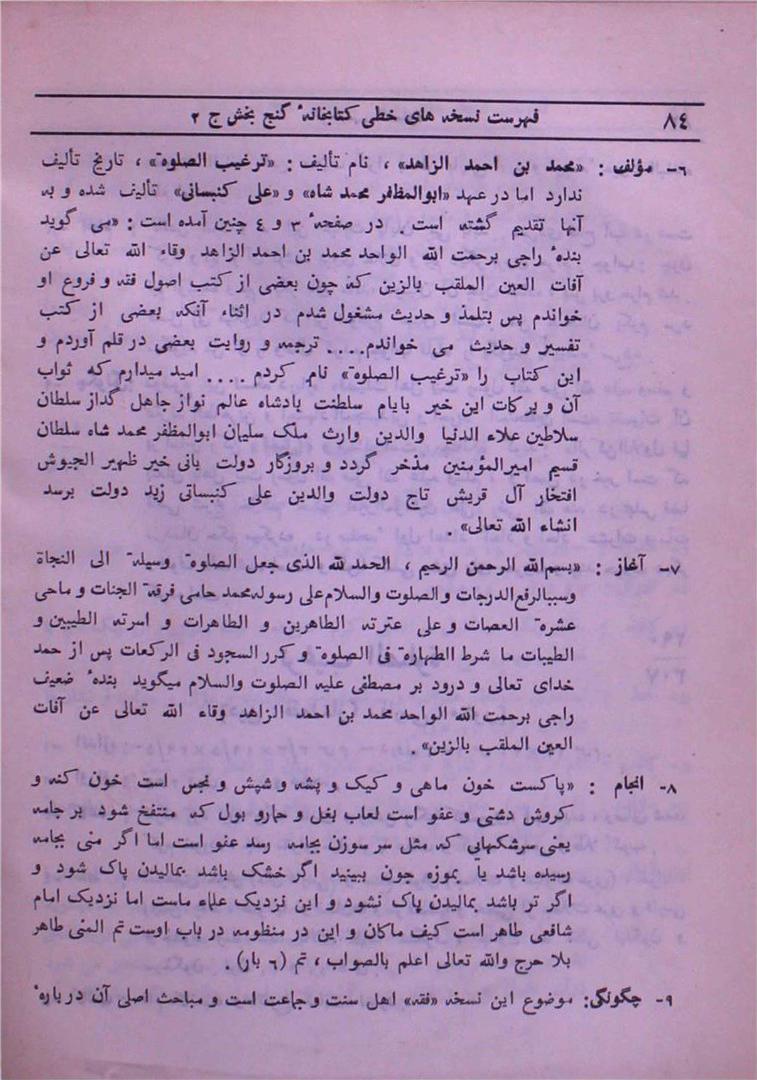 ٨٤ فهرست نسخه های خطی کتابخانهٔ گنج بخش ج ۲
٦- مؤلف : «محمد بن احمد الزاهد» ، نام تألیف : «ترغیب الصلوة» ، تاریخ تألیف
ندارد اما در عهد «ابوالمظفر محمد شاه» و «علی کنبسانی» تألیف شده و به
آنها تقدیم گشته است . در صفحهٔ ۳ و ٤ چنین آمده است : «می گوید
بندهٔ راجی برحمت الله الواحد محمد بن احمد الزاهد وقاء الله تعالی عن
آفات العین الملقب بالزین که چون بعضی از کتب اصول فقه و فروع او
خواندم پس بتلمذ و حدیث مشغول شدم در اثناء آنکه بعضی از کتب
تفسیر و حدیث می خواندم.... ترجمه و روایت بعضی در قلم آوردم و
این کتاب را «ترغیب الصلوة» نام کردم .... امید میدارم که ثواب
آن و برکات این خیر بایام سلطنت بادشاه عالم نواز جاهل گداز سلطان
سلاطین علاء الدنیا والدین وارث ملک سلیمان ابوالمظفر محمد شاه سلطان
قسیم امیرالمؤمنین مذخر گردد و بروزگار دولت بانی خیر ظهیر الجیوش
افتخار آل قریش تاج دولت والدین علی کنبساتی زید دولت برسد
انشاء الله تعالی» .
۷- آغاز : «بسم‌الله الرحمن الرحیم ، الحمد لله الذی جعل الصلوة وسیلة الی النجاة
وسببالرفع‌الدرجات و الصلوت والسلام‌علی رسوله‌محمد حامی فرقة الجنات و ماحی
عشرة العصات و علی عترته الطاهرین و الطاهرات و اسرته الطیبین و
الطیبات ما شرط الطهارة فی الصلوة و کرر السجود فی الرکعات پس از حمد
خدای تعالی و درود بر مصطفی علیه الصلوت والسلام میگوید بندهٔ ضعیف
راجی برحمت الله الواحد محمد بن احمد الزاهد وقاء الله تعالی عن آفات
العین الملقب بالزین» .
۸- انجام : «پاکست خون ماهی و کیک و پشه و شپش و نجس است خون کنه و
کروش دشتی و عفو است لعاب بغل و حمارو بول که منتفخ شود بر جامه
یعنی سرشکهایی که مثل سر سوزن بجامه رسد عفو است اما اگر منی بجامه
رسیده باشد یا بموزه جون ببینید اگر خشک باشد بمالیدن پاک شود و
اگر تر باشد بمالیدن پاک نشود و این نزدیک علماء ماست اما نزدیک امام
شافعی طاهر است کیف ماکان و این در منظومه در باب اوست تم المنی طاهر
بلا حرج والله تعالی اعلم بالصواب ، تم (٦ بار) .
۹- چگونگی: موضوع این نسخه «فقه» اهل سنت و جماعت است و مباحث اصلی آن دربارهٔ